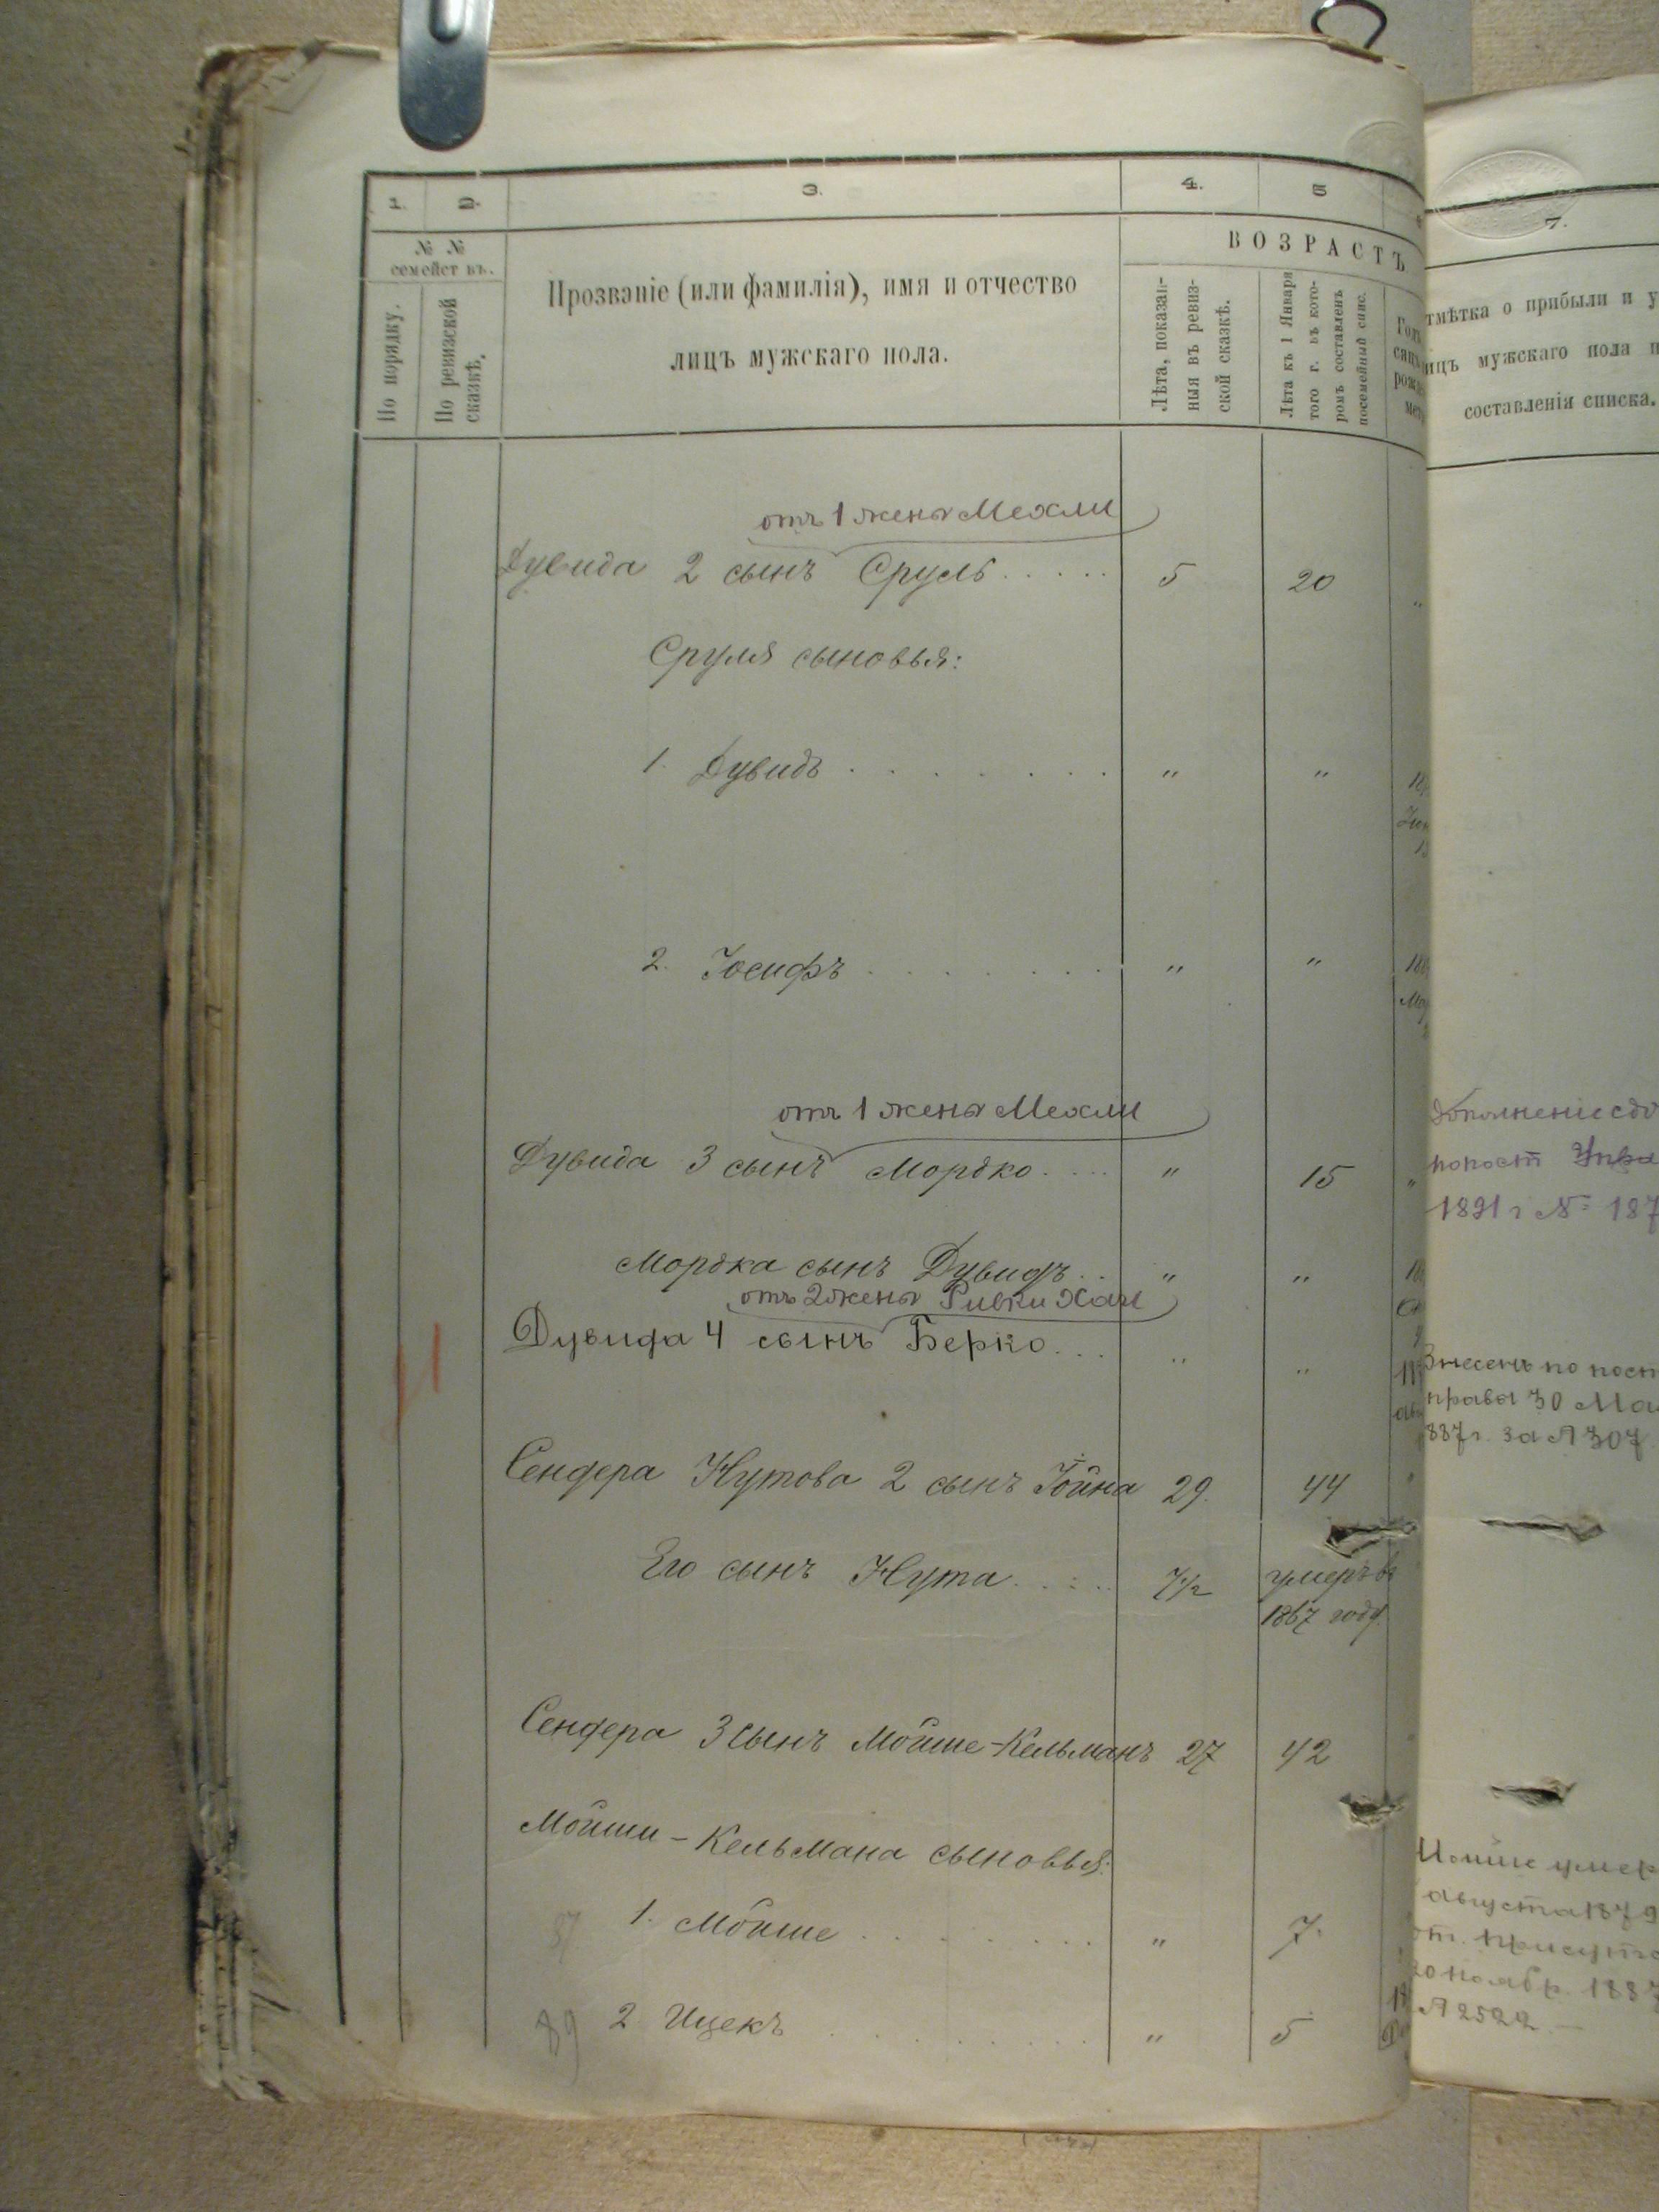 1. 2. 3. 4. 5
№ №
семействъ.
По порядку.
По ревизской
сказкѣ.
Прозваніе (или фамилія), имя и отчество
лицъ мужскаго пола.
ВОЗРАСТЪ
Лѣта, показан-
ныя въ ревиз-
ской сказкѣ.
Лѣта къ 1 Января
того г. въ кото-
ромъ составленъ
посемейный спис.
отъ 1 жены Мехли
Дувида 2 сынъ Сруль..... 5 20 "
Сруля сыновья:
1. Дувидъ........ " "
2. Іосифъ........ " "
отъ 1 жены Мехли
Дувида 3 сынъ Мордко.... " 15 "
Мордка сынъ Дувидъ.. " "
отъ 2 жены Ривки Хаи
Дувида 4 сынъ Берко... " "
Сендера Нутова 2 сынъ Іойна 29. 44
Его сынъ Нута..... 7/2 умеръ въ
1867 году.
Сендера 3 сынъ Мойше-Кельманъ 27 42
Мойши-Кельмана сыновья:
87 1. Мойше......... " 7.
89 2 Ицекъ......... " 5
7.
тмѣтка о прибыли и у
ицъ мужскаго пола п
составленія списка.
Дополнение сдо
попост
1891 г № 187
Внесенъ по пост
права 30 Ма
887 г. за № 307
Мойше умер
августа 1879
от. присутс
20 ноябр. 1887
№ 2522.—